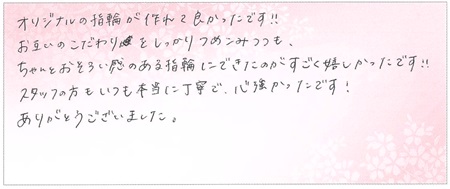 オリジナルの指輪が作れて良かったです!!
お互いのこだわりをしっかりつめこみつつも、
ちゃんとおそろい感のある指輪にできたのがすごく嬉しかったです!!
スタッフの方もいつも本当に丁寧で、心強かったです!
ありがとうございました。